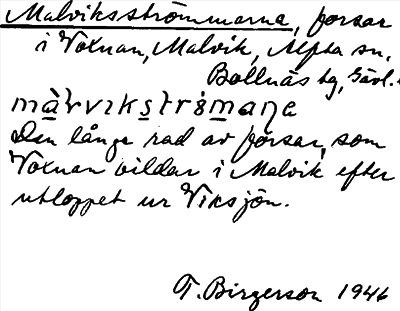 Malviksströmmarna, forsar
i Voxnan, Malvik, Alfta sn,
Bollnäs tg, Gävl.
Den långa rad av forsar, som
Voxnan bildar i Malvik efter
utloppet ur Viksjön.
T. Birgerson 1946